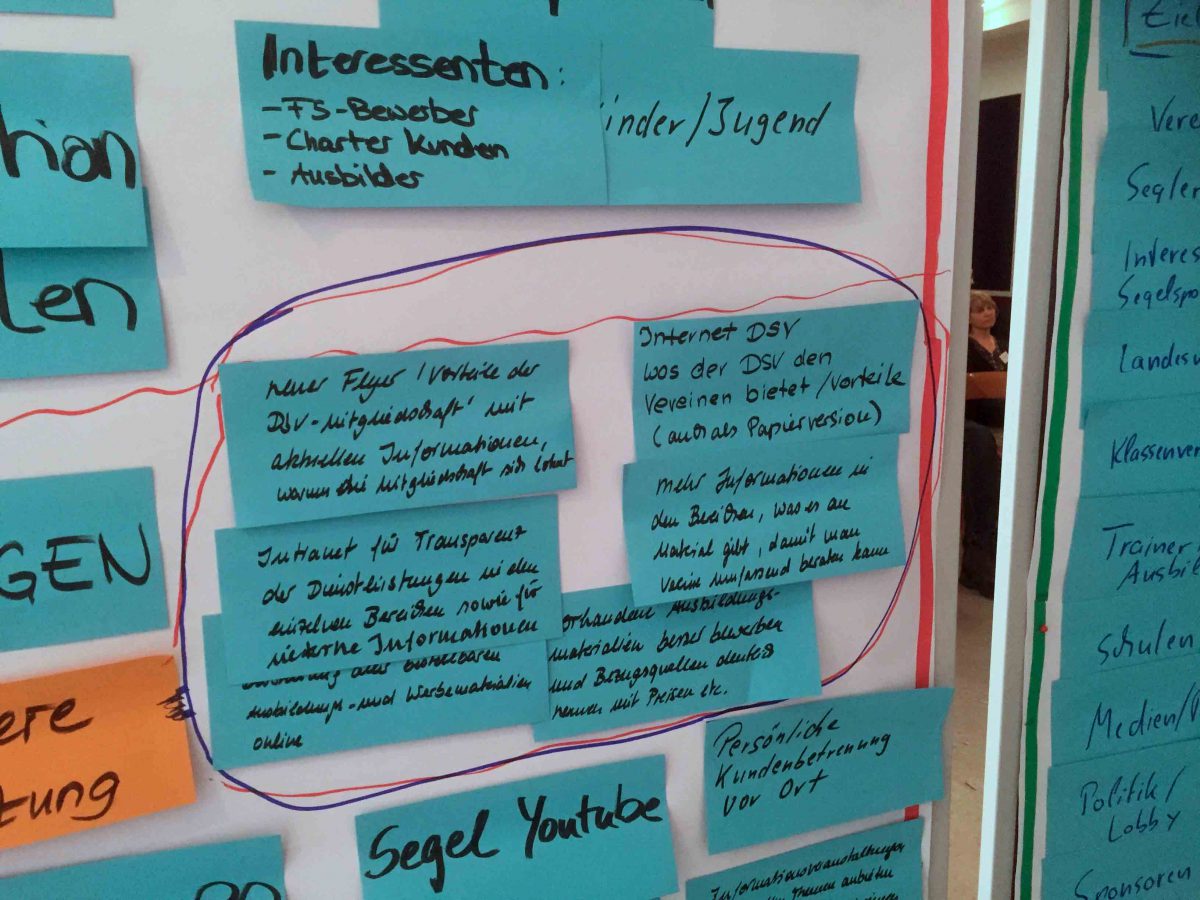 Interessenten:
-FS-Bewerber
-Charter Kunden
- Ausbilder
inder/Jugend
hian
len
GEN
ere
tung
neuer Flyer 'Vorteile der
DSV-Mitgliedschaft' mit
aktuellen Informationen,
warum die Mitgliedschaft sich lohnt
Internet DSV
was der DSV den
Vereinen bietet/Vorteile
(auch als Papierversion)
mehr Informationen in
den Bereichen, was es an
Material gibt, damit man
Vereine umfassend beraten kann
Intranet für Transparenz
der Dienstleistungen in den
einzelnen Bereichen sowie für
interne Informationen
Ausbildungs- und Werbematerialien
online
orhandene Ausbildungs-
materialien besser bewerben
und Bezugsquellen
nennen mit Preisen etc.
Persönliche
Kundenbetreuung
vor Ort
Segel Youtube
Informationsveranstaltungen
Themen anbieten
Ziel
Vere
Segler
Interes
Segelspo
Landesv
Klassenver
Trainer
Ausbil
Schulen
Medien/
Politik/
Lobby
Sponsoren